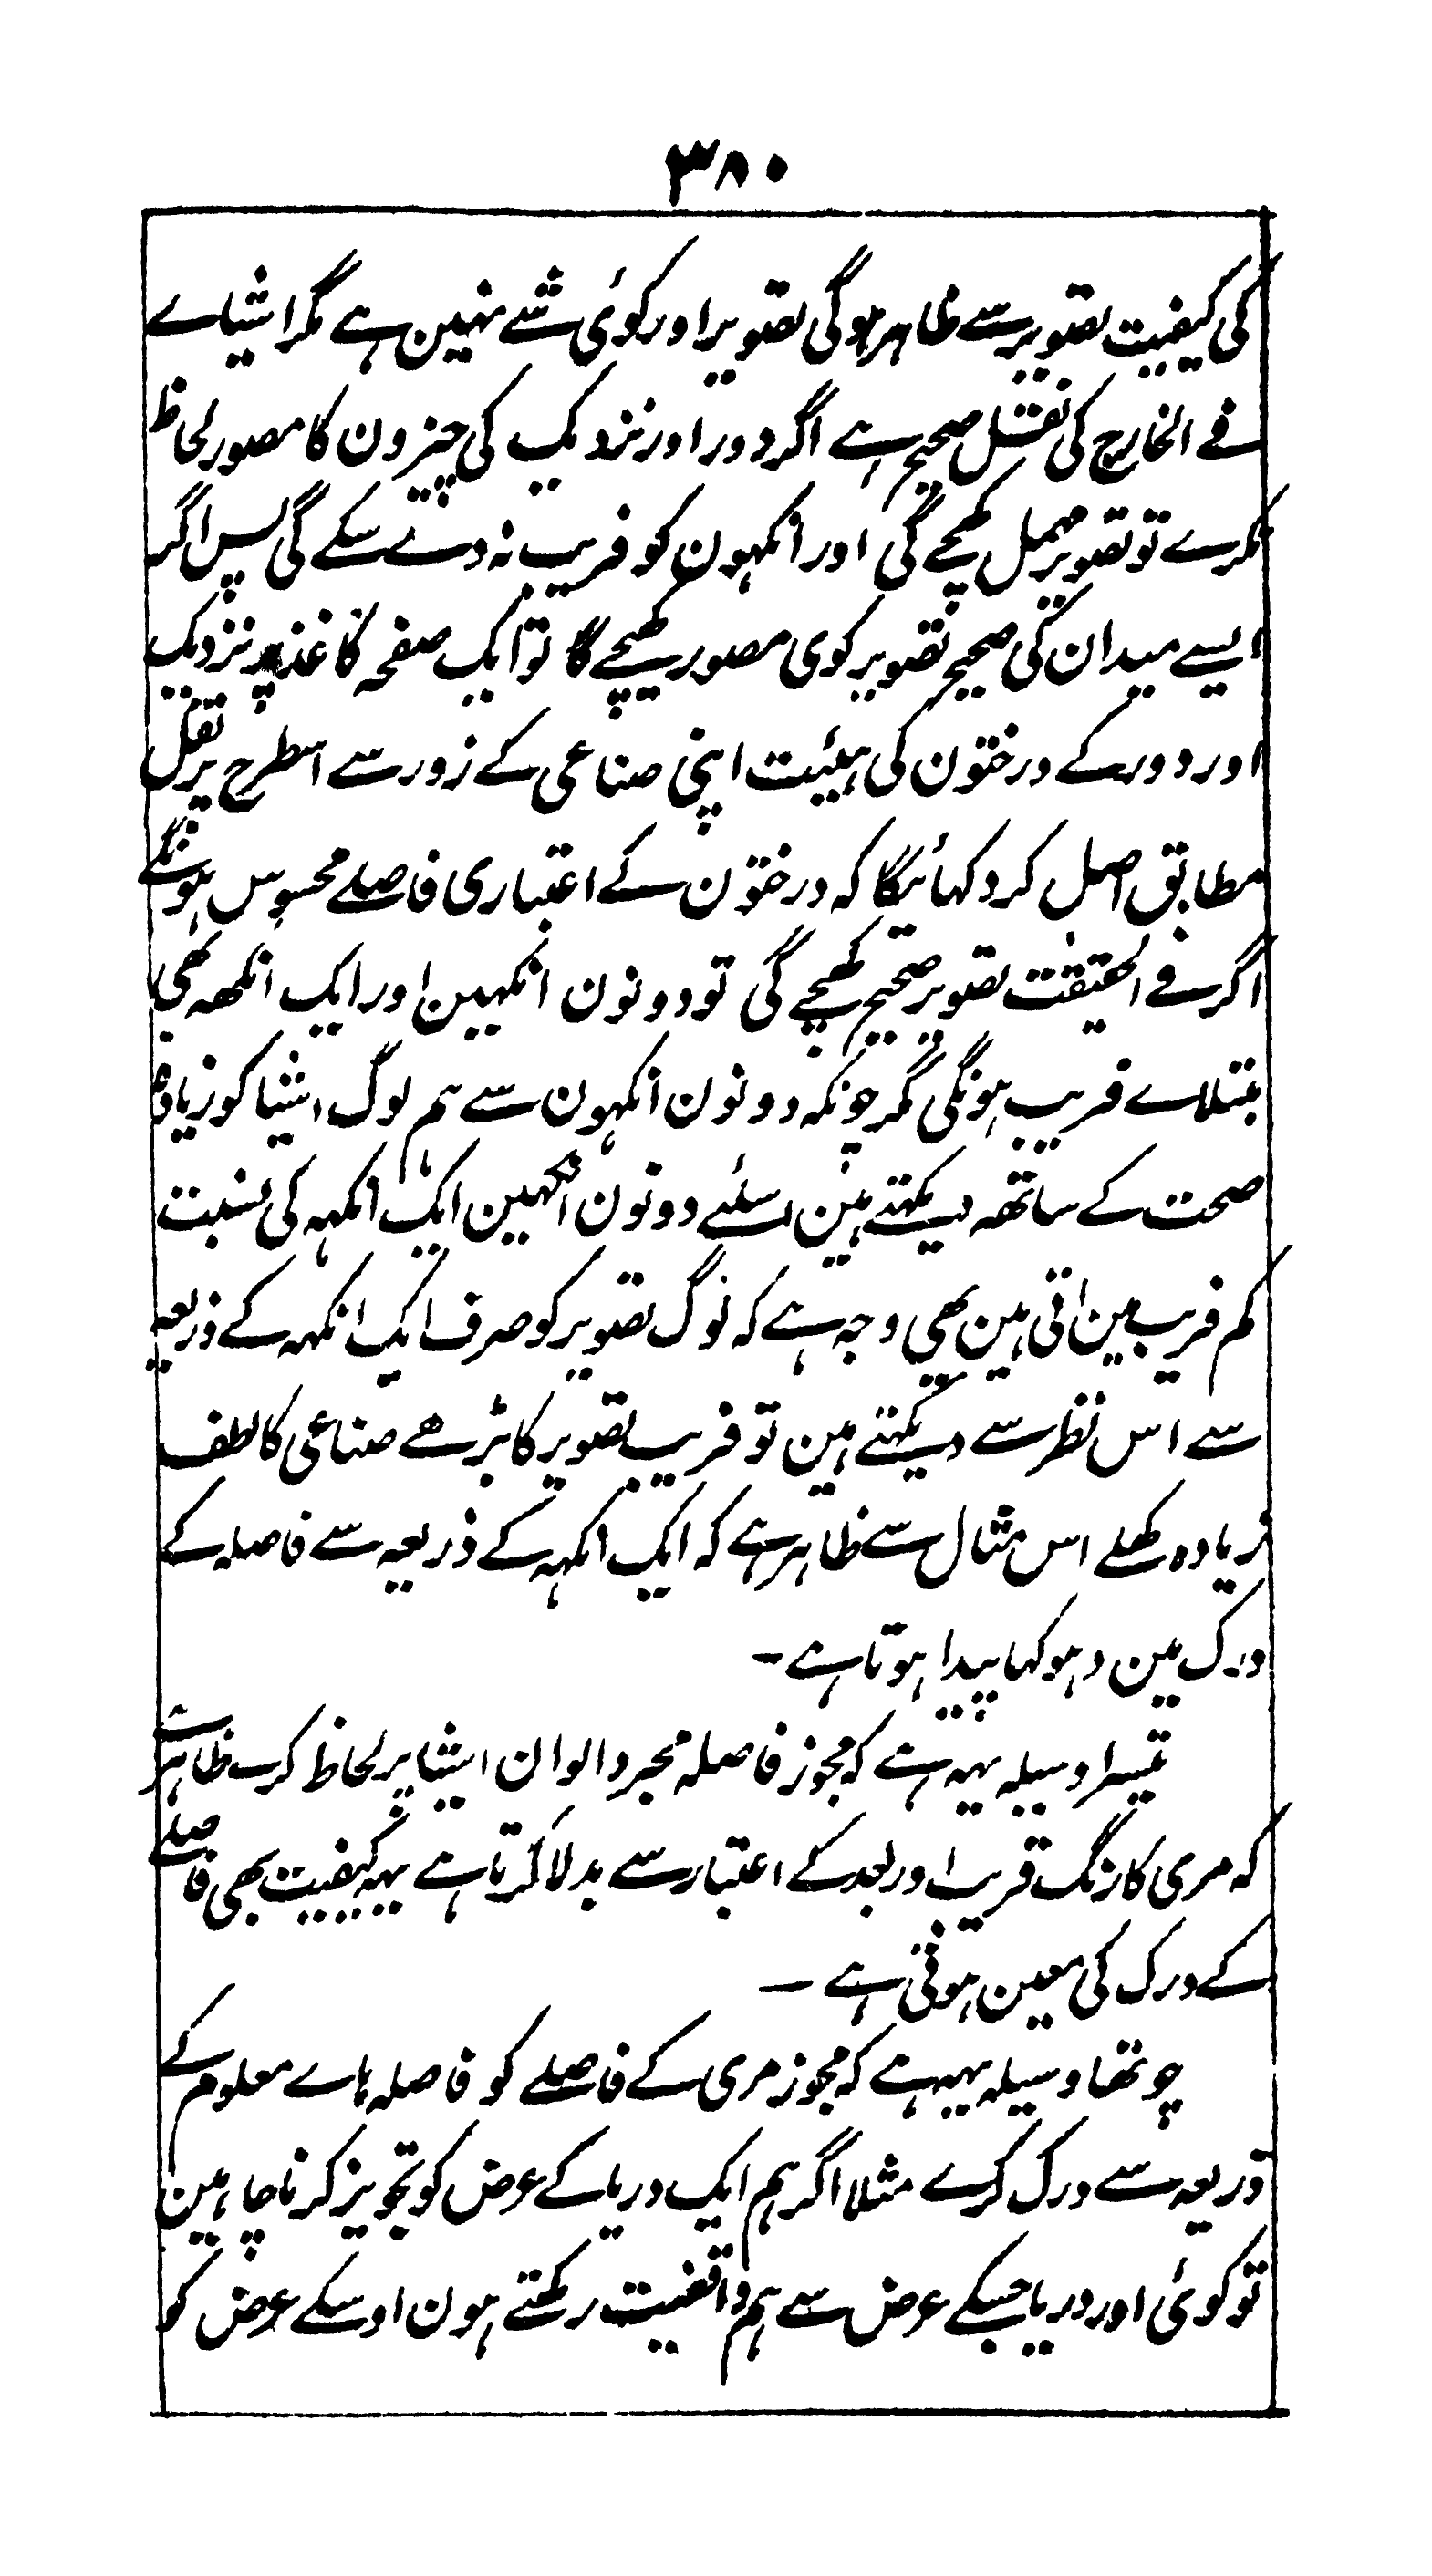 ۳۸۰
کی کیفیت تصویر سے ظاہر ہوگی تصویر اور کوئی شے نہین ہے مگر اشیاے
فے الخارج کی نقل صحیح ہے اگر دور اور نزدیک کی چیزون کا مصور لحاظ
نکرے تو تصویر مہمل کھچے گی اور انکہون کو فریب نہ دے سکے گی پس اگر
ایسے میدان کی صحیح تصویر کوی مصور کھیچے گا تو ایک صفحہ کاغذ پر نزدیک
اور دور کے درختون کی ہیئت اپنی صناعی کے زور سے اسطرح پر نقل
مطابق اصل کر دکہائیگا کہ درختون کے اعتباری فاصلے محسوس ہونگے
اگر فے الحقیقت تصویر صحیح کھچے گی تو دونون انکہین اور ایک انکھہ بھی
مبتلاے فریب ہونگی مگر چونکہ دونون انکہون سے ہم لوگ اشیا کو زیادہ
صحت کے ساتھہ دیکہتے ہین اسلئے دونون انکہین ایک انکہہ کی نسبت
کم فریب مین اتی ہین یھی وجہ ہے کہ لوگ تصویر کو صرف ایک انکہہ کے ذریعہ
سے اس نظر سے دیکہتے ہین تو فریب تصویر کا بڑھے صناعی کا لطف
زیادہ کھلے اس مثال سے ظاہر ہے کہ ایک انکہہ کے ذریعہ سے فاصلہ کے
درک مین دہوکہا پیدا ہوتا ہے ۔
تیسرا وسیلہ یہہ ہے کہ مجوز فاصلہ مجرد الوان اشیا پر لحاظ کرے ظاہر ہے
کہ مری کا رنگ قریب اور بعد کے اعتبار سے بدلا کرتا ہے یہہ کیفیت بھی فاصلے
کے درک کی معین ہوتی ہے ۔
چوتھا وسیلہ یہہ ہے کہ مجوز مری کے فاصلے کو فاصلہ ہاے معلوم کے
ذریعہ سے درک کرے مثلا اگر ہم ایک دریا کے عرض کو تجویز کرنا چاہین
تو کوئی اور دریا جسکے عرض سے ہم واقفیت رکھتے ہون اوسکے عرض کو